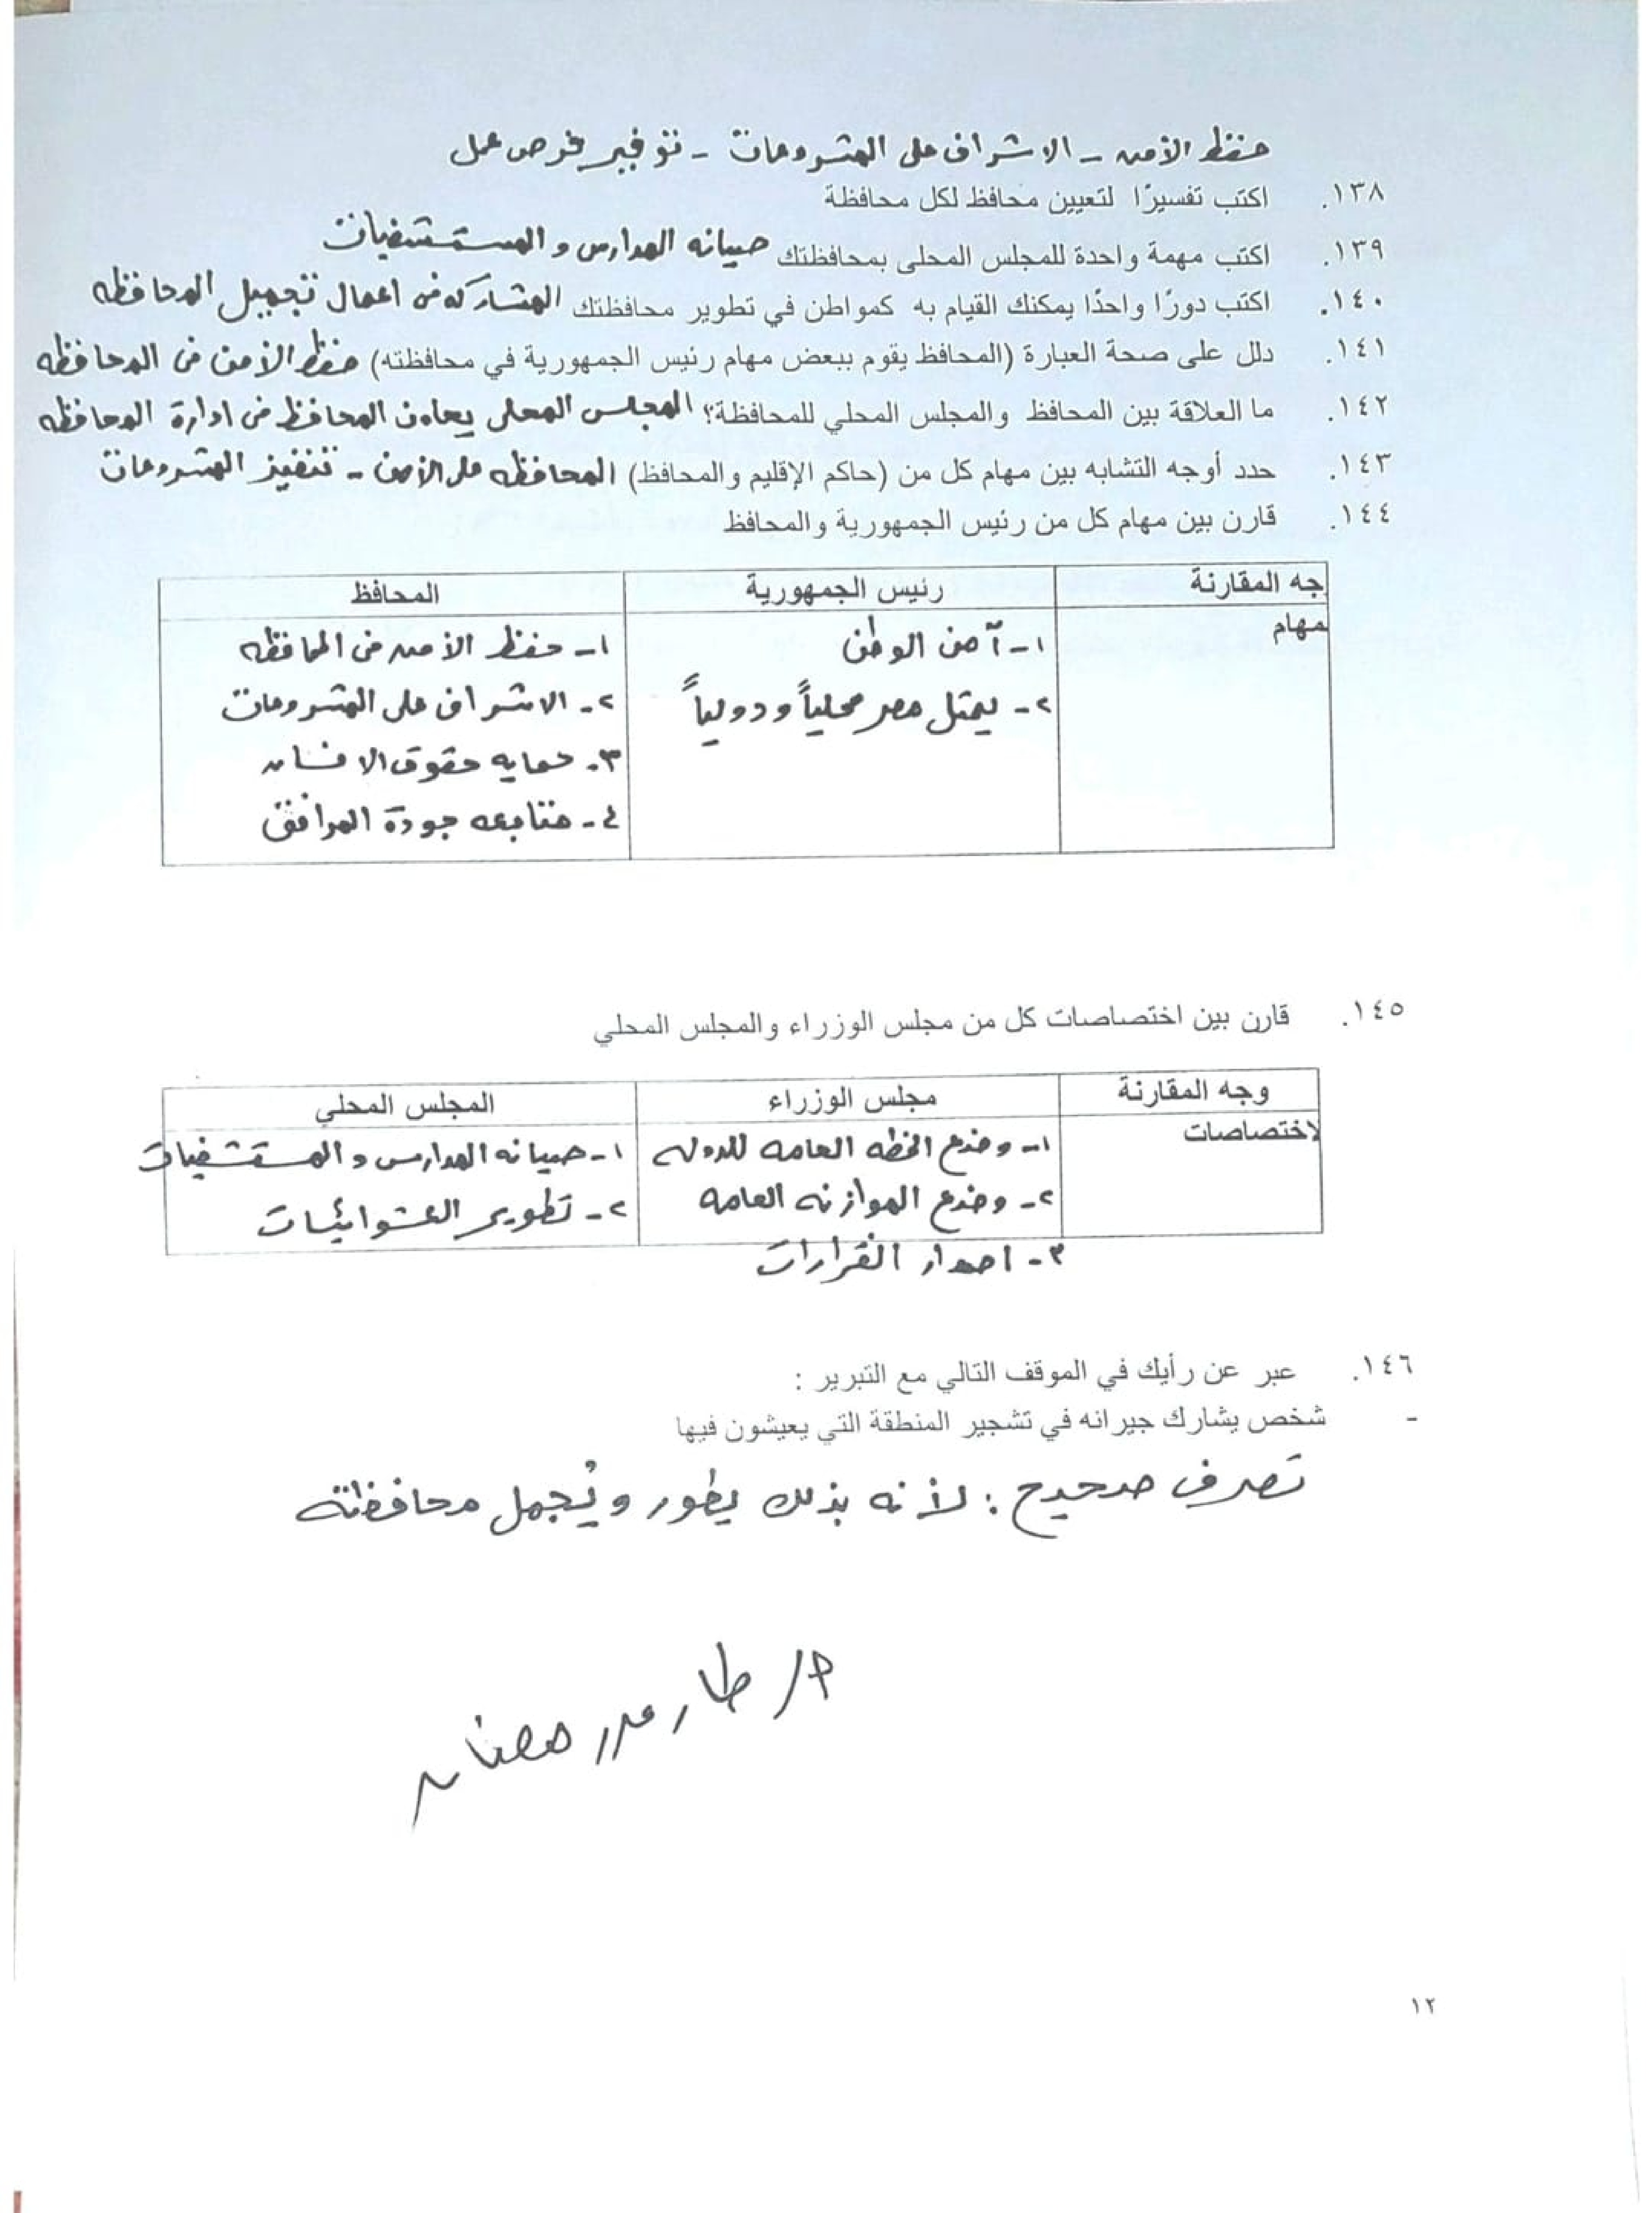 حفظ الأمن - الاشراف على المشروعات - توفير فرص عمل
١٣٨. اكتب تفسيرًا لتعيين محافظ لكل محافظة
١٣٩. اكتب مهمة واحدة للمجلس المحلى بمحافظتك صيانه المدارس و المستشفيات
١٤٠. اكتب دورًا واحدًا يمكنك القيام به كمواطن في تطوير محافظتك المشاركه فى اعمال تجميل المحافظه
١٤١. دلل على صحة العبارة (المحافظ يقوم ببعض مهام رئيس الجمهورية في محافظته) حفظ الأمن فى المحافظه
١٤٢. ما العلاقة بين المحافظ والمجلس المحلي للمحافظة؟ المجلس المحلى يعاون المحافظ فى ادارة المحافظه
١٤٣. حدد أوجه التشابه بين مهام كل من (حاكم الإقليم والمحافظ) المحافظه على الأمن - تنفيذ المشروعات
١٤٤. قارن بين مهام كل من رئيس الجمهورية والمحافظ
جه المقارنة رئيس الجمهورية المحافظ
مهام ١- أمن الوطن ١- حفظ الأمن فى المحافظه
٢- يمثل مصر محلياً ودولياً ٢- الاشراف على المشروعات
٣- حمايه حقوق الانسان
٤- متابعه جودة المرافق
١٤٥. قارن بين اختصاصات كل من مجلس الوزراء والمجلس المحلي
وجه المقارنة مجلس الوزراء المجلس المحلي
لاختصاصات ١- وضع الخطه العامه للدوله ١- صيانه المدارس و المستشفيات
٢- وضع الموازنه العامه ٢- تطوير العشوائيات
٣- اصدار القرارات
١٤٦. عبر عن رأيك في الموقف التالي مع التبرير :
- شخص يشارك جيرانه في تشجير المنطقة التي يعيشون فيها
تصرف صحيح : لأنه بذلك يطور ويُجمل محافظته
١٢